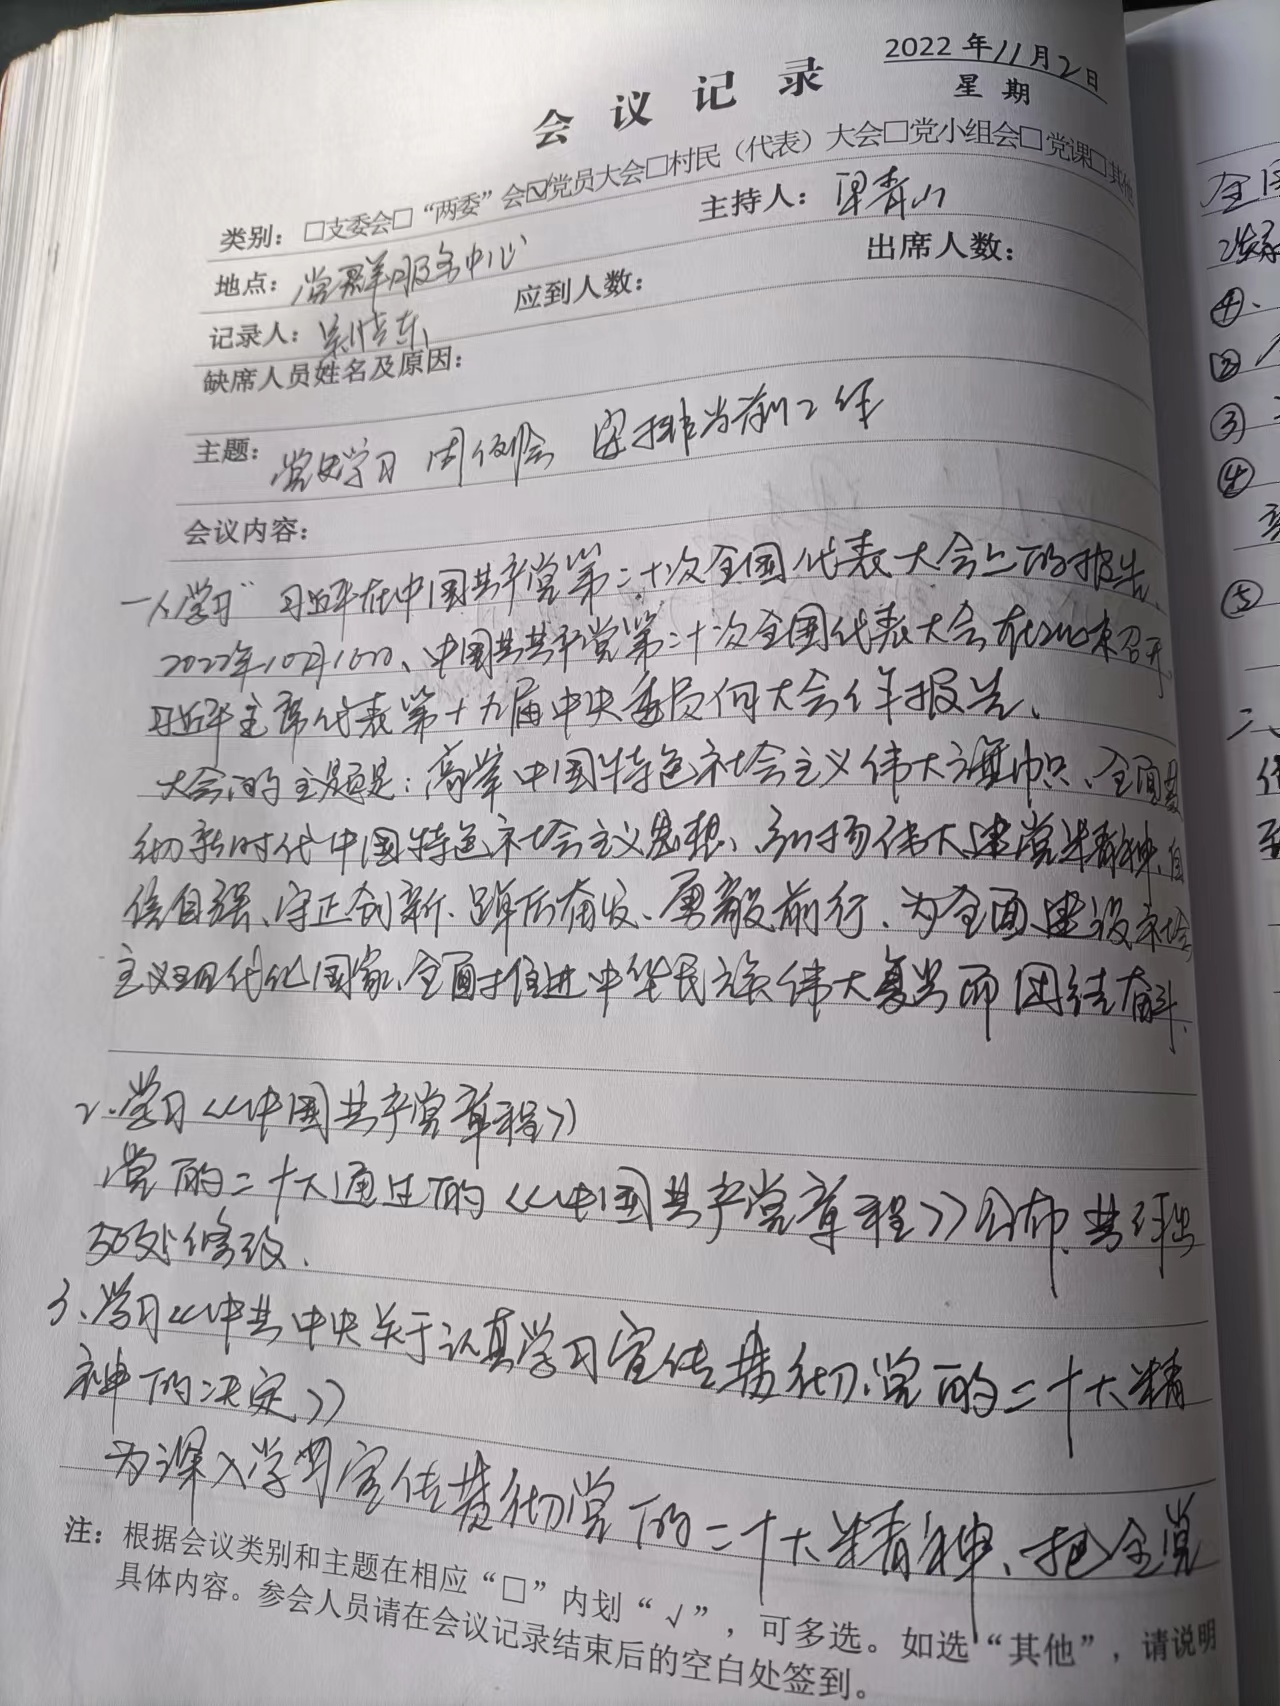 2022年11月2日
星期
会议记录
类别：□支委会□“两委”会☑党员大会□村民（代表）大会□党小组会□党课□其他
地点：党群服务中心 主持人：梁青山
记录人： 应到人数： 出席人数：
缺席人员姓名及原因：
主题：党史学习 周例会 安排当前工作
会议内容：
一、学习“习近平在中国共产党第二十次全国代表大会上的报告
2022年10月16日、中国共共产党第二十次全国代表大会在北京召开
习近平主席代表第十九届中央委员向大会作报告、
大会的主题是：高举中国特色社会主义伟大旗帜、全面贯
彻新时代中国特色社会主义思想、弘扬伟大建党精神、自
信自强、守正创新、踔厉奋发、勇毅前行、为全面建设社会
主义现代化国家、全面推进中华民族伟大复兴而团结奋斗、
2、学习《中国共产党章程》
党的二十大通过的《中国共产党章程》公布、共作出
50处修改、
3、学习《中共中央关于认真学习宣传贯彻党的二十大精
神的决定》
为深入学习宣传贯彻党的二十大精神、把全党
注：根据会议类别和主题在相应“□”内划“√”，可多选。如选“其他”，请说明
具体内容。参会人员请在会议记录结束后的空白处签到。
①、
②
③
④
⑤
二、